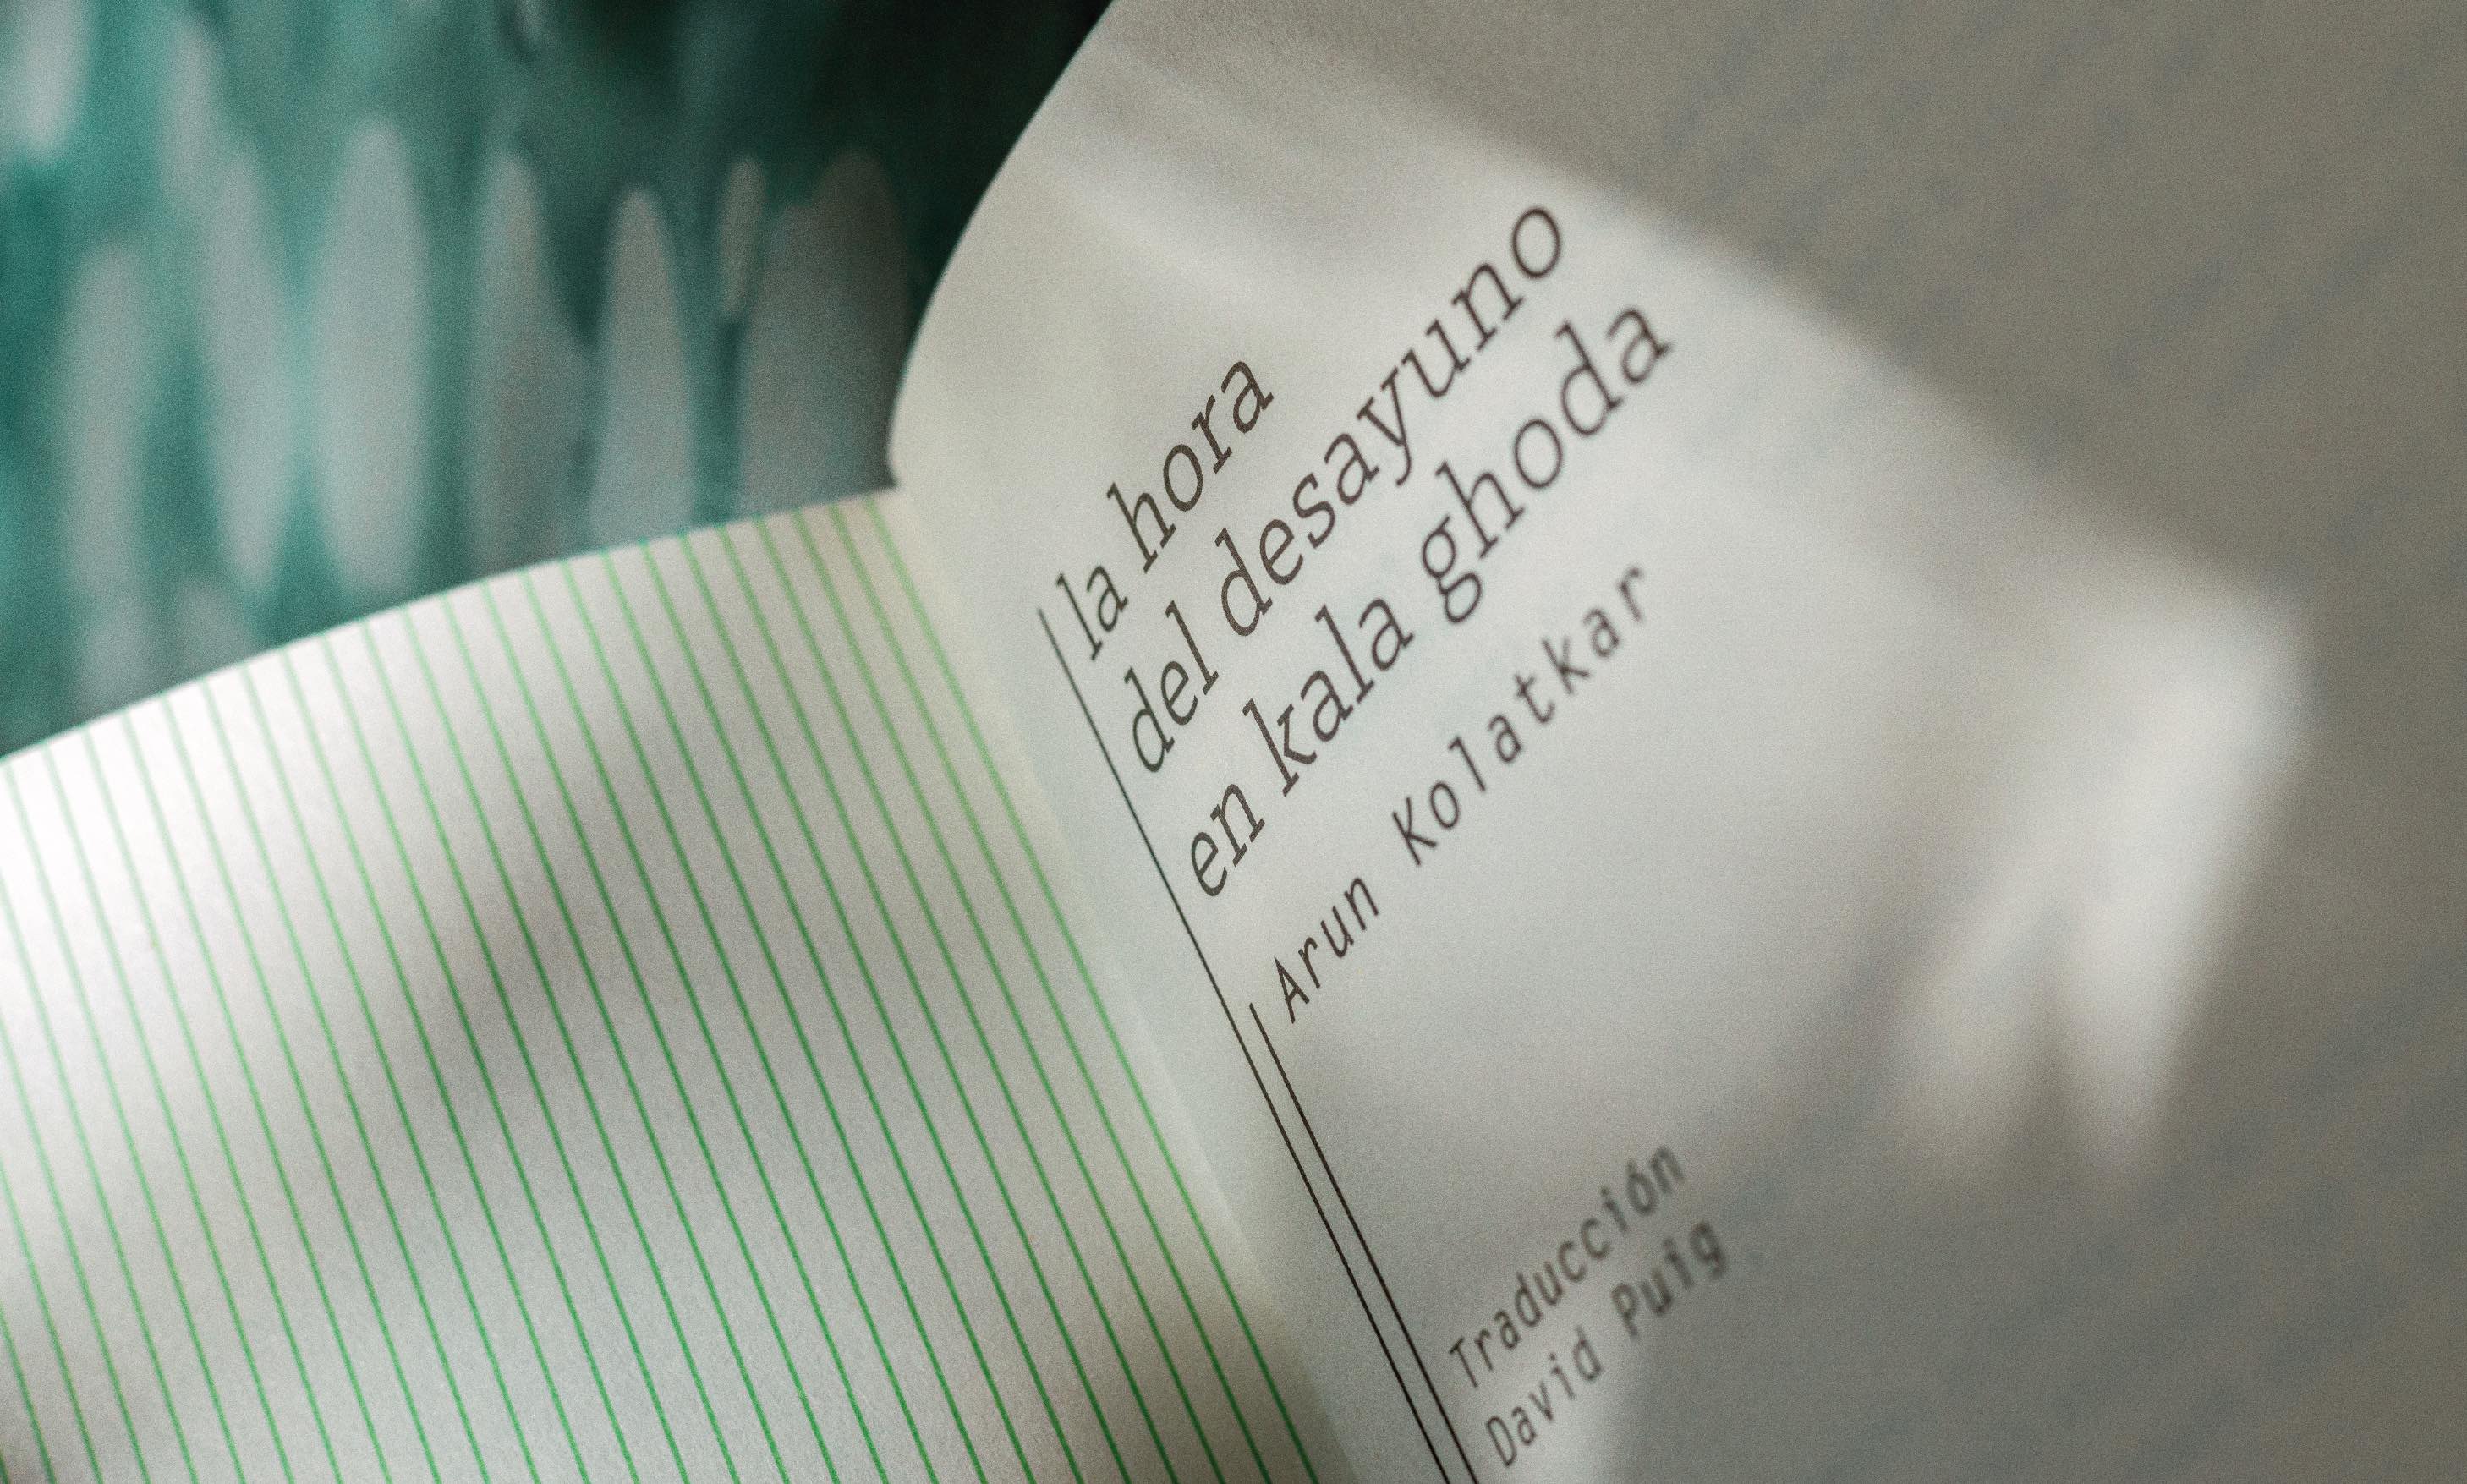 la hora
del desayuno
en kala ghoda
Arun Kolatkar
Traducción
David Puig